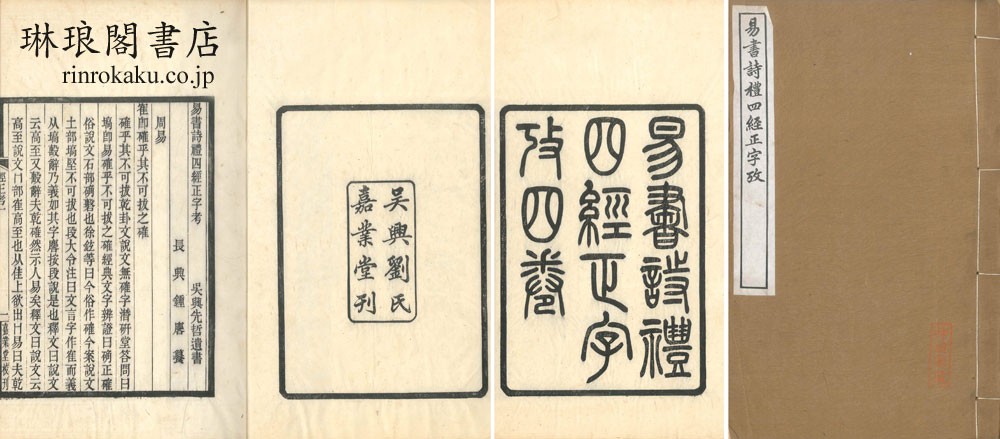 琳琅閣書店
rinrokaku.co.jp
易書詩禮四經正字考　吳興先哲遺書
長興鍾麐
周易
隺即確乎其不可拔之確
確乎其不可拔乾卦文說文無確字潛硏堂答問曰
塙卽易確乎不可拔之確經典文字辨證曰碻正確
俗說文石部確磬也徐鉉等曰今俗作確今案說文
土部塙堅不可拔也段大令注曰文言字作隺而義
从塙繫辭乃義如其字麐按段說是也釋文曰說文
云高至又繫辭夫乾確然示人易矣釋文曰說文云
高至說文冂部隺高至也从隹上欲出冂易曰夫乾
吳興劉氏
嘉業堂刊
易書詩禮
四經正字
攷四卷
易書詩禮四經正字攷